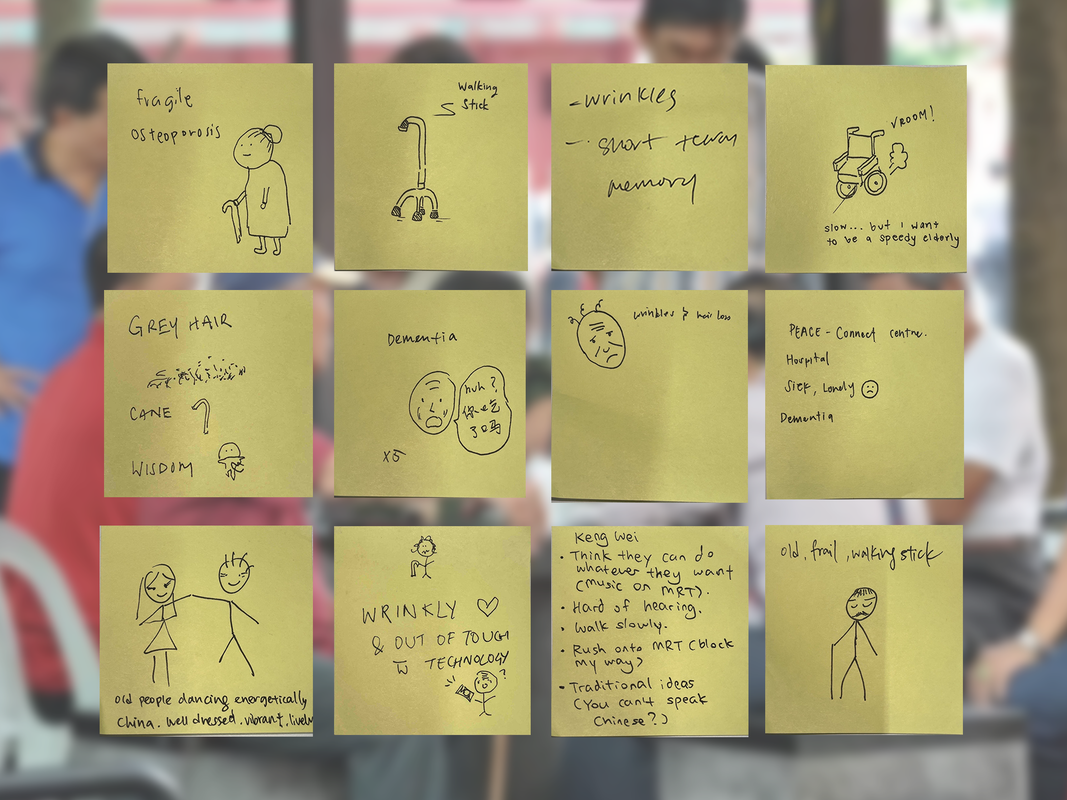 fragile
osteoporosis
Walking
Stick
- wrinkles
- short term
memory
VROOM!
slow... but i want
to be a speedy elderly
GREY HAIR
CANE
WISDOM
Dementia
huh?
你吃
了口吗
wrinkles & hair loss
PEACE - Connect centre.
Hospital
Sick, Lonely
Dementia
old people dancing energetically
China. Well dressed. vibrant, lively
WRINKLY
& OUT OF TOUCH
TECHNOLOGY
?
Keng Wei
• Think they can do
whatever they want
(music on MRT).
• Hard of hearing.
• Walk slowly.
• Rush onto MRT (block
my way)
• Traditional ideas
(You can't speak
Chinese?)
old, frail, walking stick